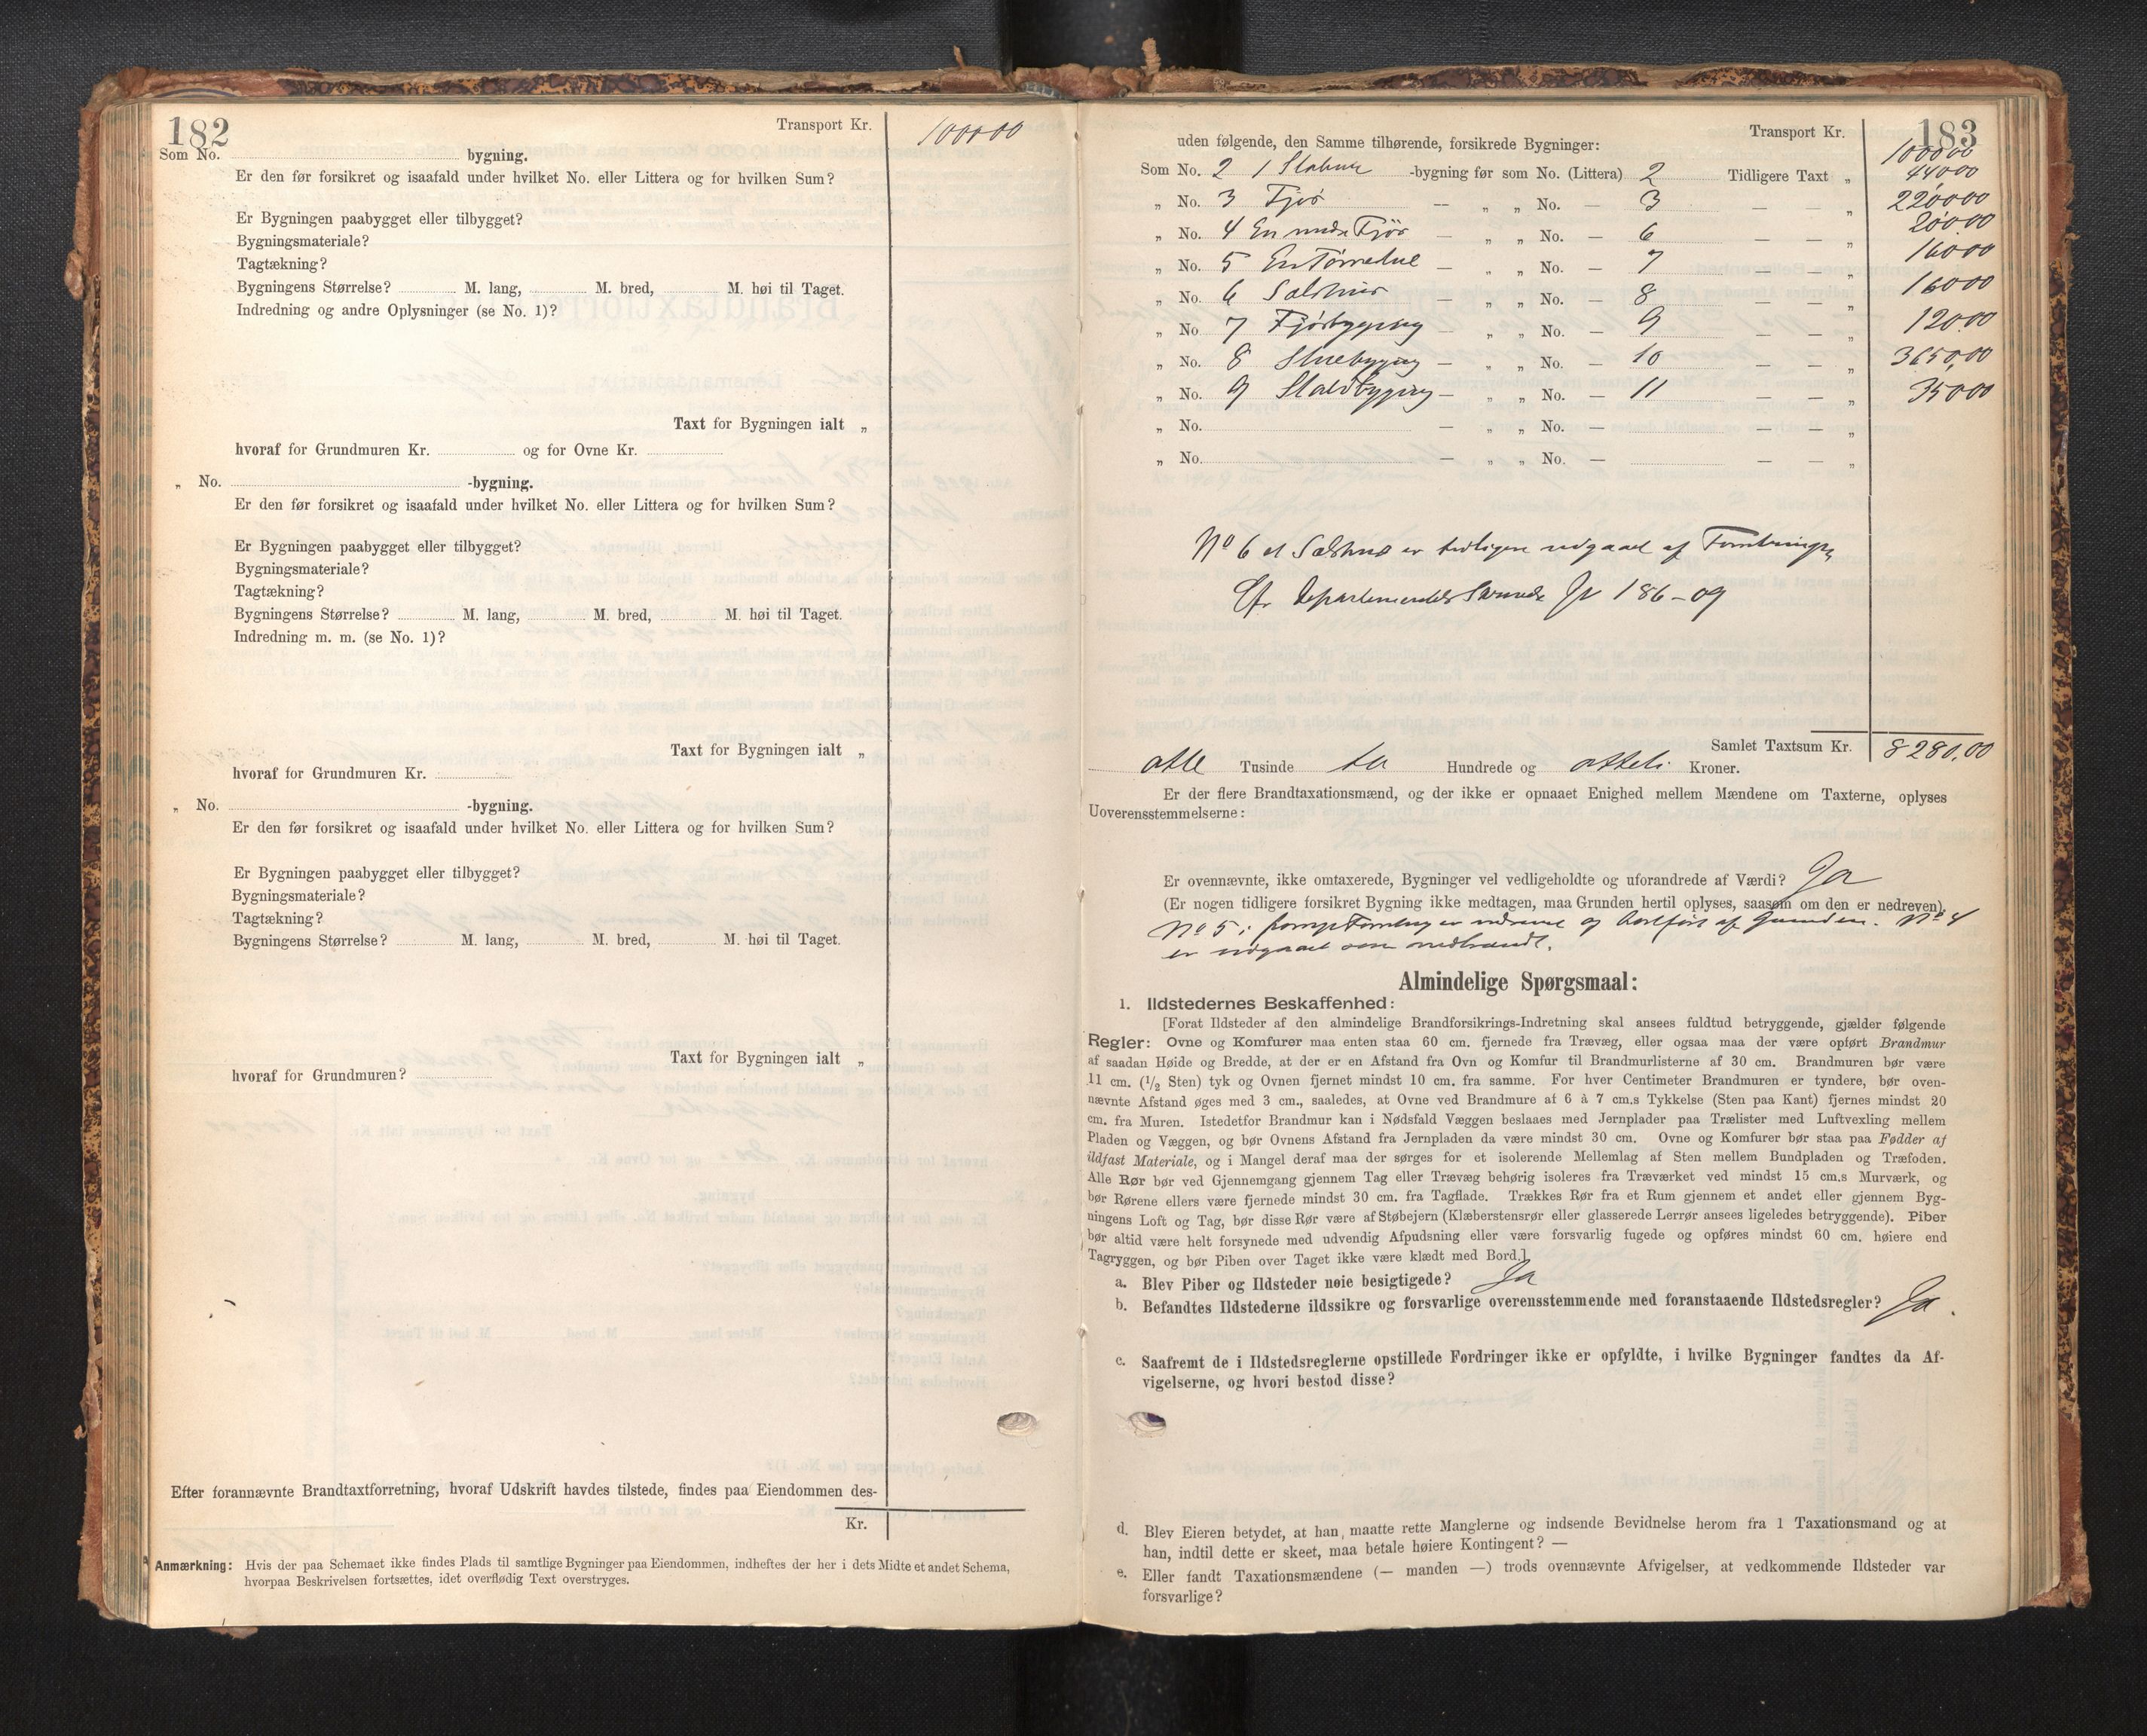 182
Transport Kr. 1000 00
Som No. bygning.
Er den før forsikret og isaafald under hvilket No. eller Littera og for hvilken Sum?
Er Bygningen paabygget eller tilbygget?
Bygningsmateriale?
Tagtækning?
Bygningens Størrelse? M. lang, M. bred, M. høi til Taget.
Indredning og andre Oplysninger (se No. 1)?
Taxt for Bygningen ialt „
hvoraf for Grundmuren Kr. og for Ovne Kr.
„ No. -bygning.
Er den før forsikret og isaafald under hvilket No. eller Littera og for hvilken Sum?
Er Bygningen paabygget eller tilbygget?
Bygningsmateriale?
Tagtækning?
Bygningens Størrelse? M. lang, M. bred, M. høi til Taget.
Indredning m. m. (se No. 1)?
Taxt for Bygningen ialt „
hvoraf for Grundmuren Kr.
„ No. -bygning.
Er den før forsikret og isaafald under hvilket No. eller Littera og for hvilken Sum?
Er Bygningen paabygget eller tilbygget?
Bygningsmateriale?
Tagtækning?
Bygningens Størrelse? M. lang, M. bred, M. høi til Taget.
Taxt for Bygningen ialt „
hvoraf for Grundmuren?
Efter forannævnte Brandtaxtforretning, hvoraf Udskrift havdes tilstede, findes paa Eiendommen des-
Kr.
Anmærkning: Hvis der paa Schemaet ikke findes Plads til samtlige Bygninger paa Eiendommen, indheftes der her i dets Midte et andet Schema,
hvorpaa Beskrivelsen fortsættes, idet overflødig Text overstryges.
183
Transport Kr. 1000 00
uden følgende, den Samme tilhørende, forsikrede Bygninger:
Som No. 2 1 Stabur -bygning før som No. (Littera) 2 Tidligere Taxt „ 440 00
„ No. 3 Fjös — „ „ No. — 3 — — „ 2200 00
„ No. 4 En Fjös — „ „ No. — 6 — — „ 200.00
„ No. 5 En — „ „ No. — 7 — — „ 160 00
„ No. 6 Sælshus — „ „ No. — 8 — — „ 160 00
„ No. 7 Fjösbygning — „ „ No. — 9 — — „ 120.00
„ No. 8 Stuebygning — „ „ No. — 10 — — „ 3650,00
„ No. 9 Staldbygning — „ „ No. — 11 — — „ 350 00
„ No. — „ „ No. — — — „
„ No. — „ „ No. — — — „
No 6 et Sælshus er tidligere udgaaet af
Cfr Departementets Skrivelse Jr 186-09
Samlet Taxtsum Kr. 8280,00
otte Tusinde to Hundrede og otteti Kroner.
Er der flere Brandtaxationsmænd, og der ikke er opnaaet Enighed mellem Mændene om Taxterne, oplyses
Uoverensstemmelserne:
Er ovennævnte, ikke omtaxerede, Bygninger vel vedligeholdte og uforandrede af Værdi? Ja
(Er nogen tidligere forsikret Bygning ikke medtagen, maa Grunden hertil oplyses, saasom om den er nedreven).
No 5 i er nedrevet og bortført af Grunden. No 4
er udgaaet som nedbrændt.
Almindelige Spørgsmaal:
1. Ildstedernes Beskaffenhed:
[Forat Ildsteder af den almindelige Brandforsikrings-Indretning skal ansees fuldtud betryggende, gjælder følgende
Regler: Ovne og Komfurer maa enten staa 60 cm. fjernede fra Trævæg, eller ogsaa maa der være opført Brandmur
af saadan Høide og Bredde, at der er en Afstand fra Ovn og Komfur til Brandmurlisterne af 30 cm. Brandmuren bør være
11 cm. (1/2 Sten) tyk og Ovnen fjernet mindst 10 cm. fra samme. For hver Centimeter Brandmuren er tyndere, bør oven-
nævnte Afstand øges med 3 cm., saaledes, at Ovne ved Brandmure af 6 à 7 cm.s Tykkelse (Sten paa Kant) fjernes mindst 20
cm. fra Muren. Istedetfor Brandmur kan i Nødsfald Væggen beslaaes med Jernplader paa Trælister med Luftvexling mellem
Pladen og Væggen, og bør Ovnens Afstand fra Jernpladen da være mindst 30 cm. Ovne og Komfurer bør staa paa Fødder af
ildfast Materiale, og i Mangel deraf maa der sørges for et isolerende Mellemlag af Sten mellem Bundpladen og Træfoden.
Alle Rør bør ved Gjennemgang gjennem Tag eller Trævæg behørig isoleres fra Træværket ved mindst 15 cm.s Murværk, og
bør Rørene ellers være fjernede mindst 30 cm. fra Tagflade. Trækkes Rør fra et Rum gjennem et andet eller gjennem Byg-
ningens Loft og Tag, bør disse Rør være af Støbejern (Klæberstensrør eller glasserede Lerrør ansees ligeledes betryggende). Piber
bør altid være helt forsynede med udvendig Afpudsning eller være forsvarlig fugede og opføres mindst 60 cm. høiere end
Tagryggen, og bør Piben over Taget ikke være klædt med Bord.]
a. Blev Piber og Ildsteder nøie besigtigede? Ja
b. Befandtes Ildstederne ildssikre og forsvarlige overensstemmende med foranstaaende Ildstedsregler? Ja.
c. Saafremt de i Ildstedsreglerne opstillede Fordringer ikke er opfyldte, i hvilke Bygninger fandtes da Af-
vigelserne, og hvori bestod disse?
d. Blev Eieren betydet, at han maatte rette Manglerne og indsende Bevidnelse herom fra 1 Taxationsmand og at
han, indtil dette er skeet, maa betale høiere Kontingent? —
e. Eller fandt Taxationsmændene (— manden —) trods ovennævnte Afvigelser, at vedkommende Ildsteder var
forsvarlige?